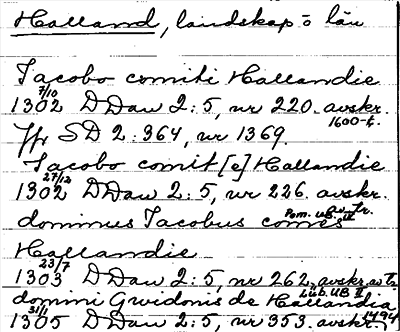 Halland, landskap o län
Jacobo comiti Hallandie
7/10
1302 DDan 2:5, nr 220. avskr.
1600-t.
Jfr SD 2:364, nr 1369.
Jacobo comit[e] Hallandie
27/12
1302 DDan 2:5, nr 226. avskr.
Pom. UB II
dominus Jacobus comes
Hallandie
23/7
1303 DDan 2:5, nr 262, avskr.
Lüb. UB II
domini Gwidonis de Hallandia
31/1
1305 DDan 2:5, nr 353. avskr.
1494